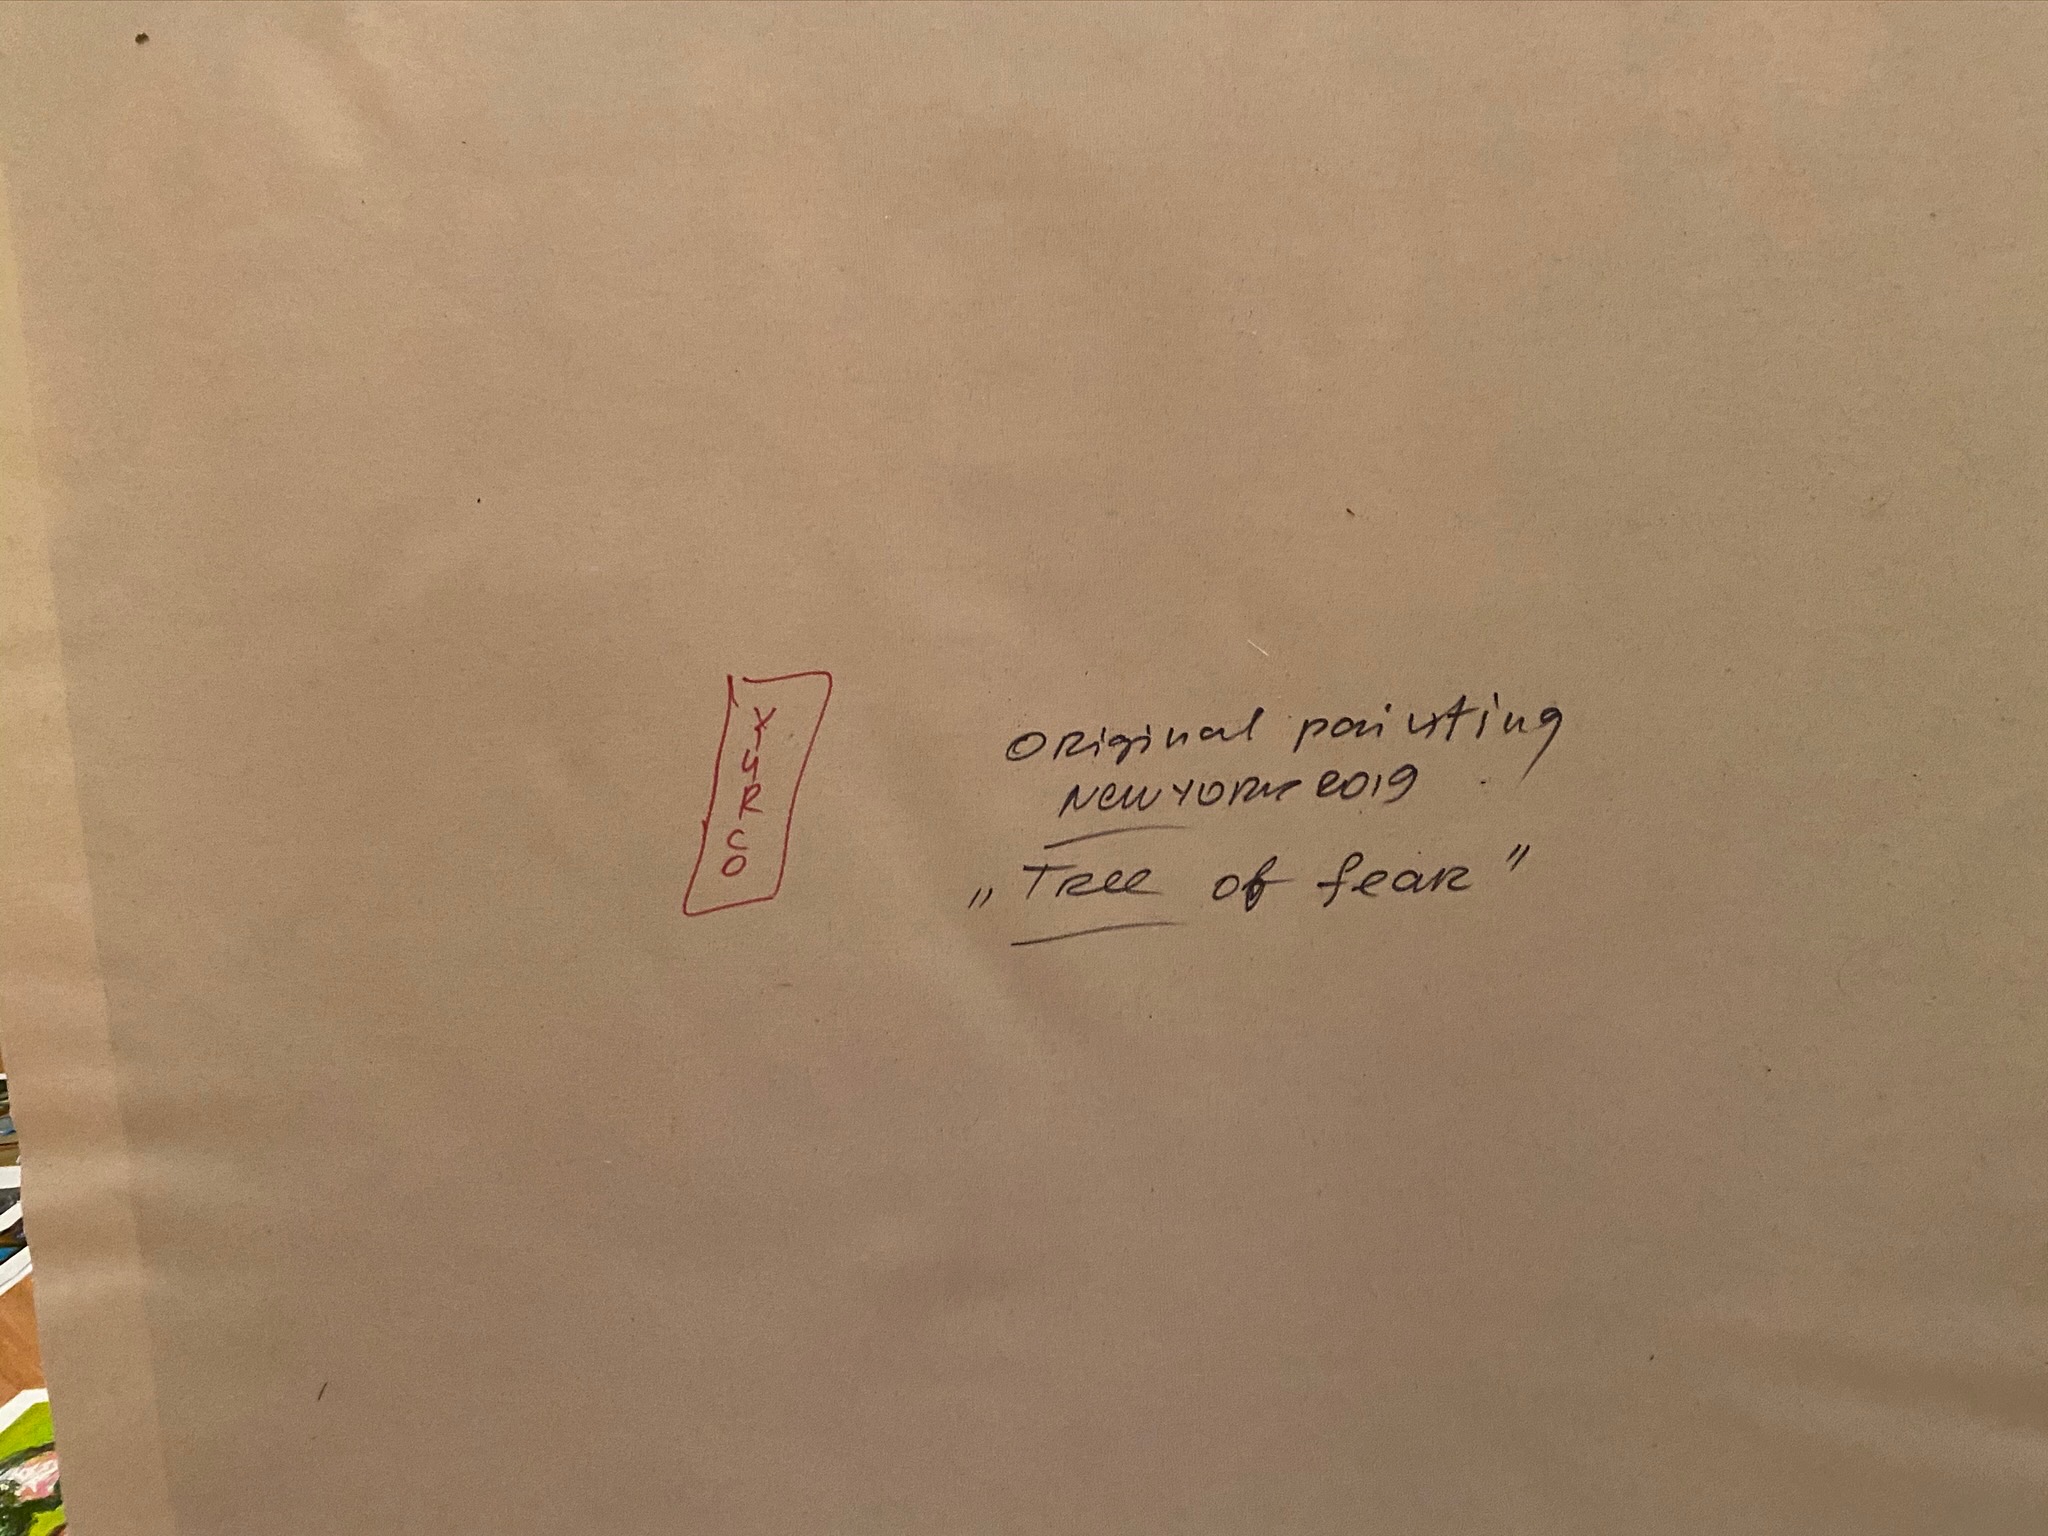 YURCO
Original painting
New York 2019
„Tree of fear”